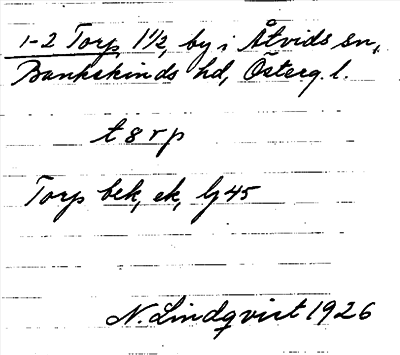 1-2 Torp 1 1/2, by i Åtvids sn,
Bankekinds hd, Österg. l.
t8rp
Torp bek, ek, lj 45
N. Lindqvist 1926